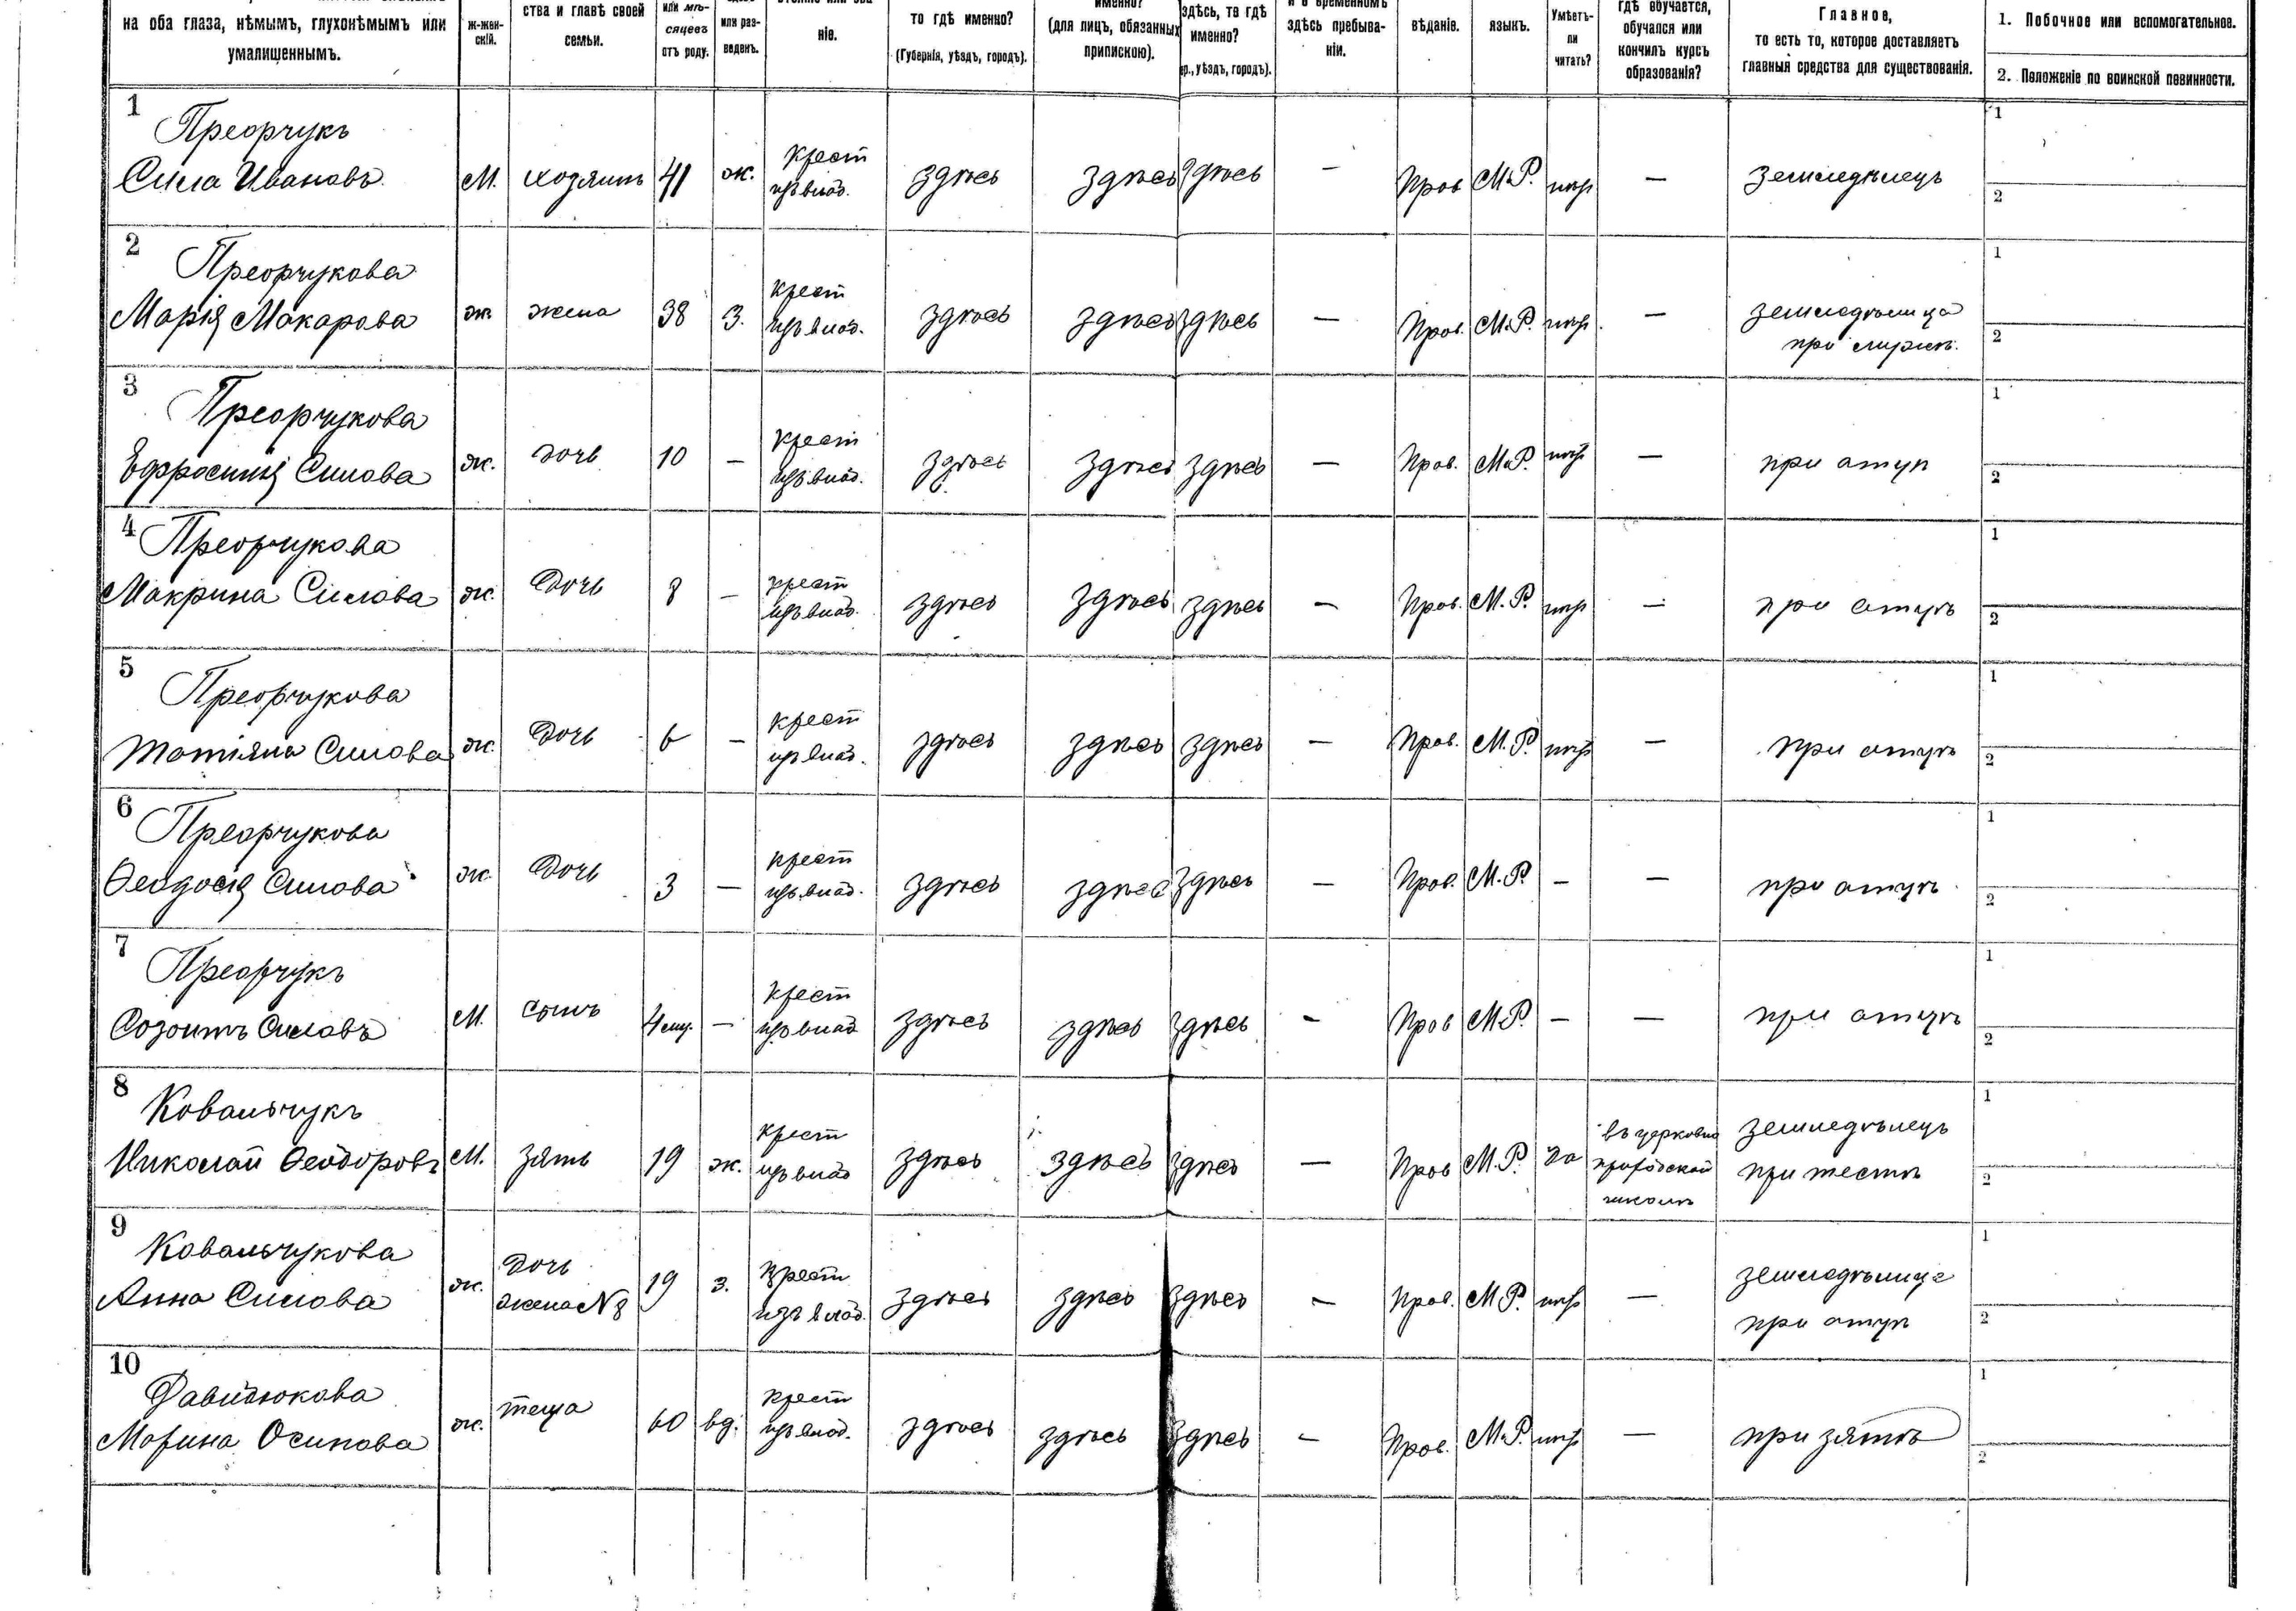 на оба глаза, нѣмымъ, глухонѣмымъ или
умалишеннымъ.
ж-жен-
скій.
ства и главѣ своей
семьи.
или мѣ-
сяцевъ
отъ роду.
или раз-
веденъ.
ніе.
то гдѣ именно?
(Губернія, уѣздъ, городъ).
именно?
(для лицъ, обязанныхъ
припискою).
здѣсь, та гдѣ
именно?
р., уѣздъ, городъ).
и о временномъ
здѣсь пребыва-
ніи.
вѣданіе.
языкъ.
Умѣетъ-
ли
читать?
гдѣ обучается,
обучался или
кончилъ курсъ
образованія?
Главное,
то есть то, которое доставляетъ
главныя средства для существованія.
1. Побочное или вспомогательное.
2. Положеніе по воинской повинности.
1
Преорчукъ
Сила Ивановъ
М. хозяинъ 41 ж. крест изъ влад. здѣсь здѣсь здѣсь — Прав М.Р. нѣтъ — земледѣлецъ
1
2
2
Преорчукова
Марія Макарова
ж жена 38 з. крест изъ влад. здѣсь здѣсь здѣсь — Прав. М.Р. нѣтъ — земледѣлица
при
1
2
3
Преорчукова
Ефросинія Силова
ж. дочь 10 — крест изъ влад. здѣсь здѣсь здѣсь — Прав. М.Р. нѣтъ — при отцѣ
1
2
4
Преорчукова
Макрина Силова
ж. Дочь 8 — крест изъ влад. здѣсь здѣсь здѣсь — Прав. М.Р. нѣтъ — при отцѣ
1
2
5
Преорчукова
Татіяна Силова
ж. Дочь 6 — крест изъ влад. здѣсь здѣсь здѣсь — Прав. М.Р. нѣтъ — при отцѣ
1
2
6
Преорчукова
Ѳеодосія Силова
ж Дочь 3 — крест изъ влад. здѣсь здѣсь здѣсь — Прав. М.Р. — — при отцѣ
1
2
7
Преорчукъ
Созонтъ Силовъ
М. сынъ 4 — крест изъ влад здѣсь здѣсь здѣсь — Прав М.Р. — — при отцѣ
1
2
8
Ковальчукъ
Николай Ѳеодоровъ
М. зять 19 ж. крест изъ влад здѣсь здѣсь здѣсь — Прав М.Р. да въ церковно приходской школѣ земледѣлецъ
при тестѣ
1
2
9
Ковальчукова
Анна Силова
ж. Дочь жена № 8 19 з. крест изъ влад. здѣсь здѣсь здѣсь — Прав. М.Р. нѣтъ — земледѣлица
при отцѣ
1
2
10
Давидюкова
Марина Осипова
ж. теща 60 вд. крест изъ влад. здѣсь здѣсь здѣсь — Прав. М.Р. нѣтъ — при зятѣ
1
2